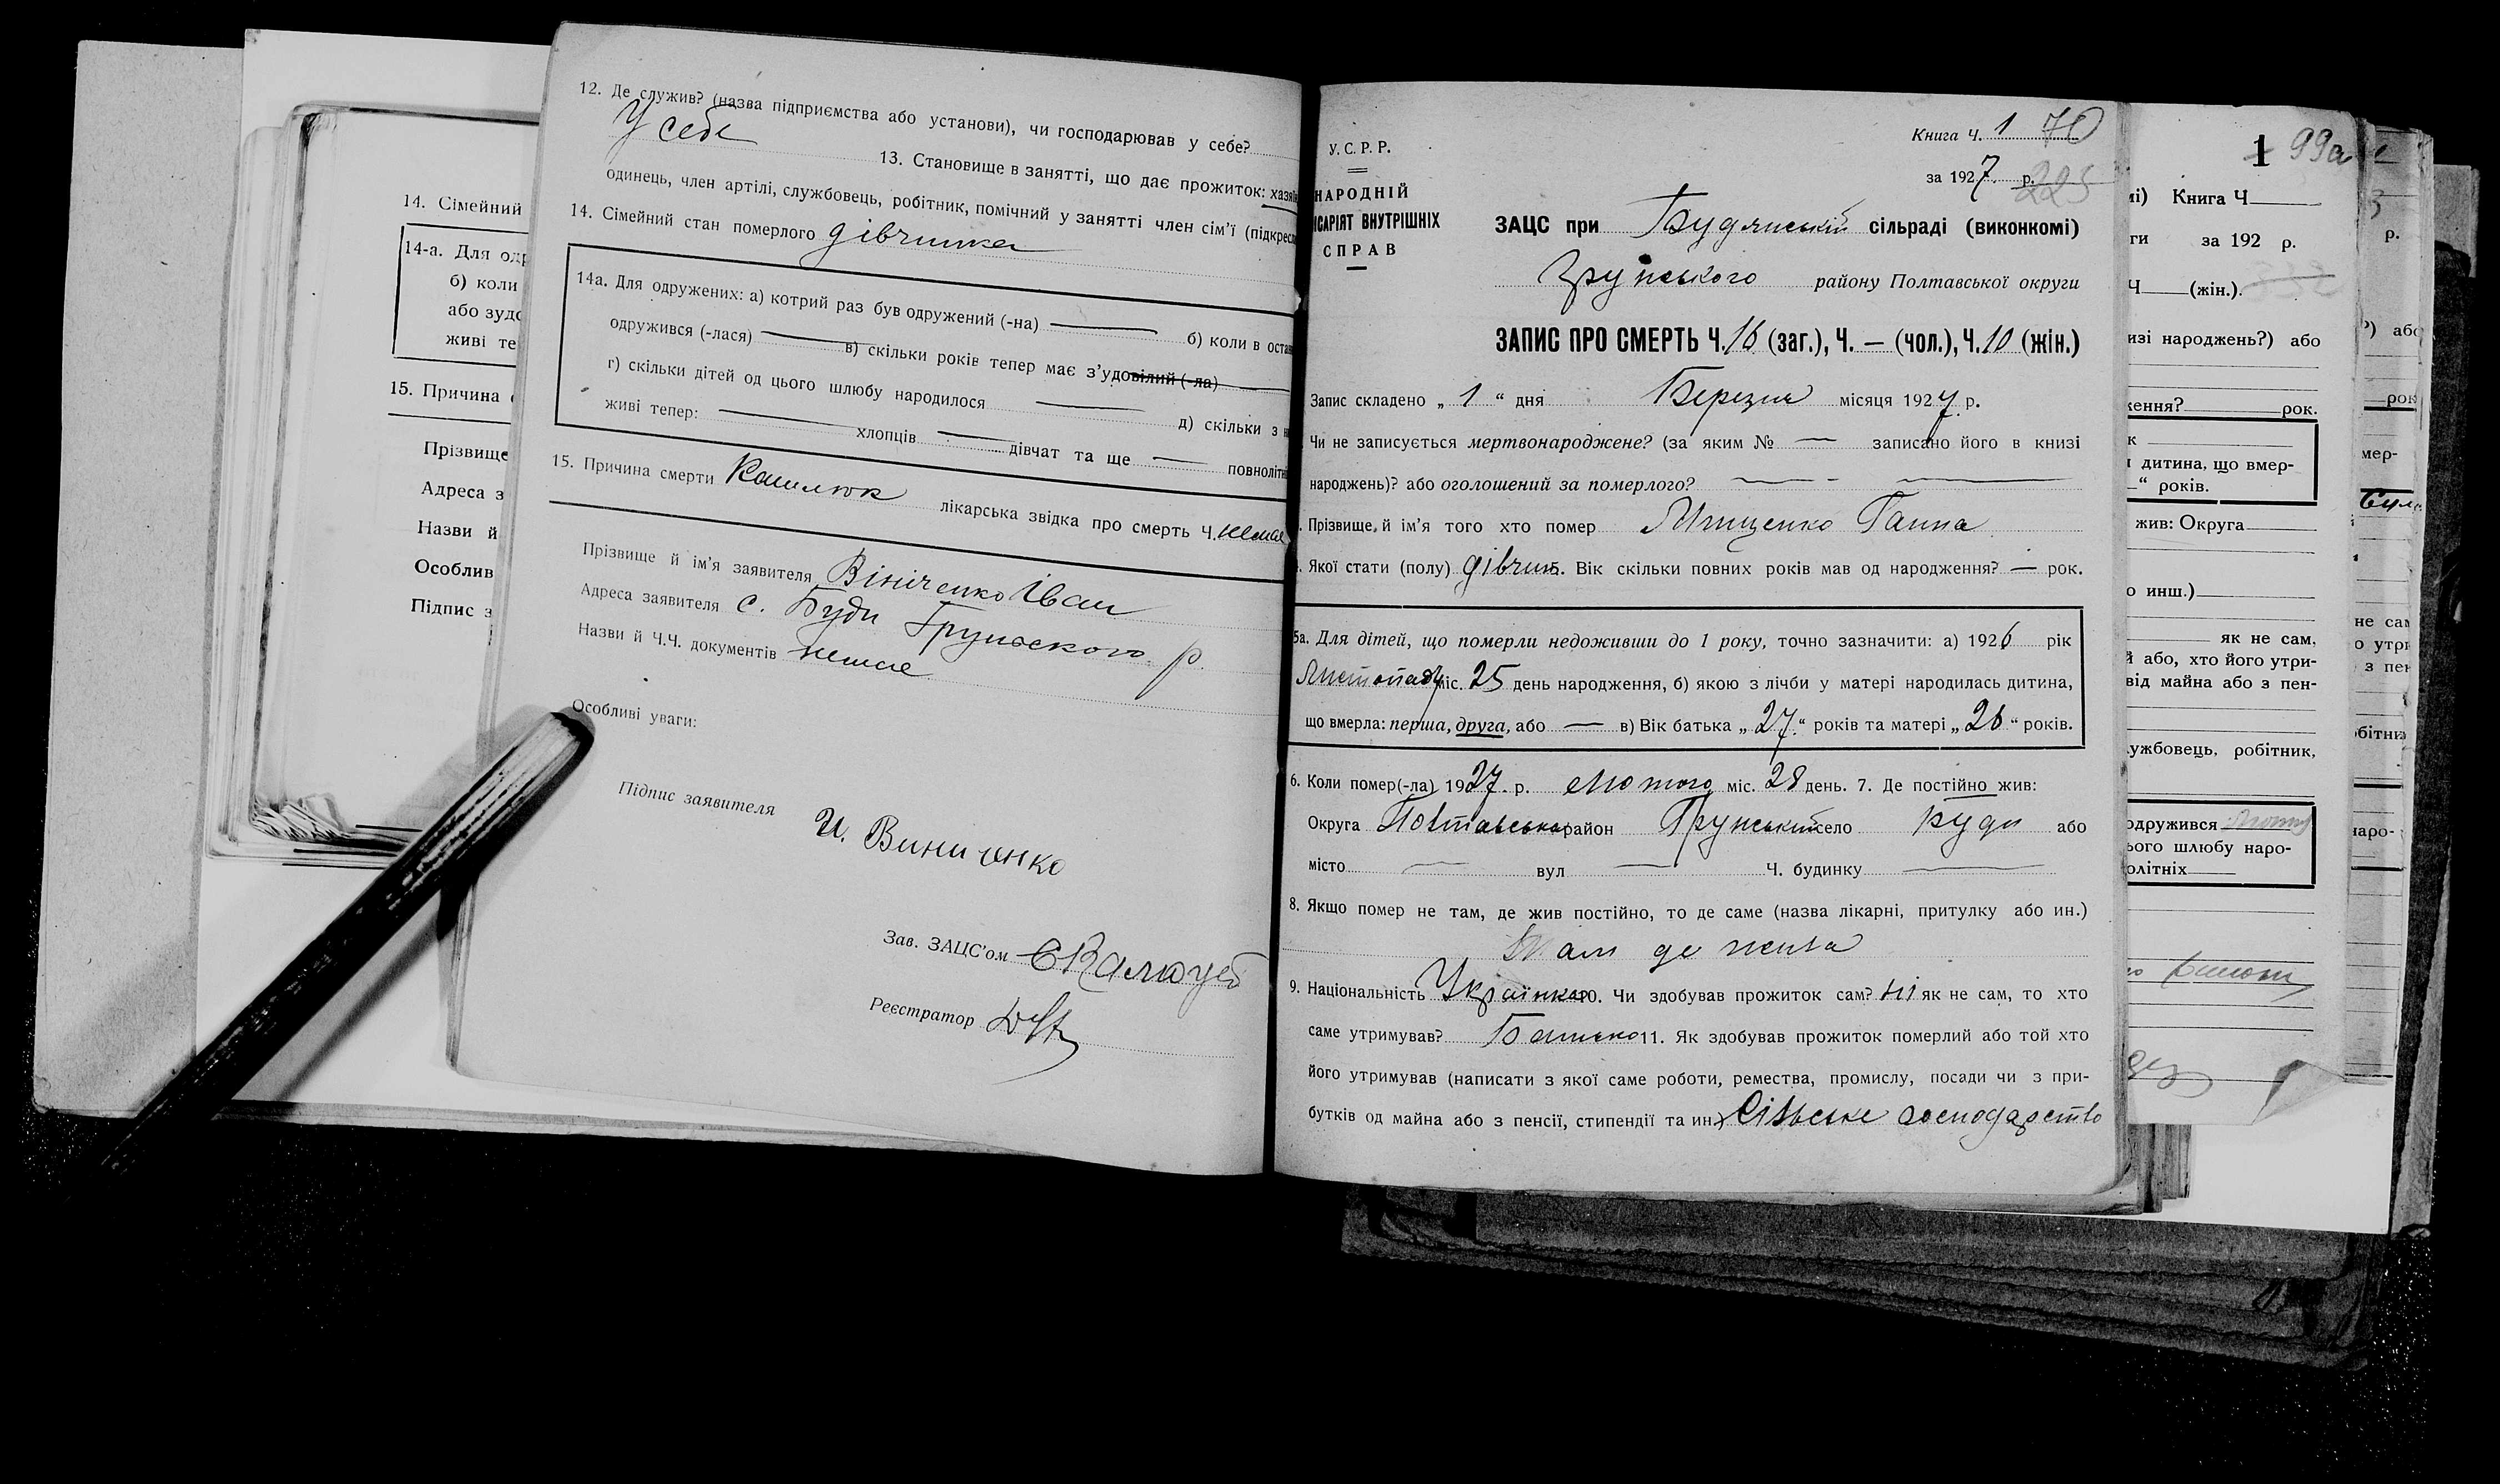 14. Сімейний
14-а. Для од
б) коли
або зудо
живі те
15. Причина
Прізвище
Адреса з
Назви й
Особлив
Підпис з
12. Де служив? (назва підприємства або установи), чи господарював у себе?
У себе
13. Становище в занятті, що дає прожиток: хазяїн
одинець, член артілі, службовець, робітник, помічний у занятті член сім'ї (підкресл
14. Сімейний стан померлого дівчинка
14а. Для одружених: а) котрий раз був одружений (-на) — б) коли в оста
одружився (-лася) — в) скільки років тепер має з'удовілий (-ла) —
г) скільки дітей од цього шлюбу народилося — д) скільки з н
живі тепер: — хлопців — дівчат та ще — повнолітн
15. Причина смерти Кашлюк лікарська звідка про смерть Ч. немає
Прізвище й ім'я заявителя Вініченко Іван
Адреса заявителя с. Буди Грунського р.
Назви й Ч.Ч. документів немає
Особливі уваги:
Підпис заявителя И. Виниченко
Зав. ЗАЦС'ом
Реєстратор
Книга Ч. 1 70
У.С.Р.Р.
за 1927 р. 225
НАРОДНІЙ
ІСАРІЯТ ВНУТРІШНІХ
СПРАВ
ЗАЦС при Будянській сільраді (виконкомі)
Грунського району Полтавської округи
ЗАПИС ПРО СМЕРТЬ Ч. 16 (заг.), Ч. — (чол.), Ч. 10 (жін.)
Запис складено „ 1 “ дня Березня місяця 1927 р.
Чи не записується мертвонароджене? (за яким № — записано його в книзі
народжень)? або оголошений за померлого? — —
Прізвище й ім'я того хто помер Мищенко Ганна
Якої стати (полу) дівчин 5. Вік скільки повних років мав од народження? — рок.
5а. Для дітей, що померли недоживши до 1 року, точно зазначити: а) 1926 рік
Листопаду міс. 25 день народження, б) якою з лічби у матері народилась дитина,
що вмерла: перша, друга, або — в) Вік батька „ 27 “ років та матері „ 26 “ років.
6. Коли помер(-ла) 1927 р. Лютого міс. 28 день. 7. Де постійно жив:
Округа Полтавська район Грунський село Буди або
місто — вул — Ч. будинку —
8. Якщо помер не там, де жив постійно, то де саме (назва лікарні, притулку або ин.)
Там де жила
9. Національність Українка 10. Чи здобував прожиток сам? Ні як не сам, то хто
саме утримував? Батько 11. Як здобував прожиток померлий або той хто
його утримував (написати з якої саме роботи, ремества, промислу, посади чи з при-
бутків од майна або з пенсії, стипендії та ин.) Сільське господарство
1 99а
мі) Книга Ч
ги за 192 р.
Ч (жін.).
изі народжень?) або
ження? рок.
к
дитина, що вмер-
“ років.
жив: Округа
о инш.)
як не сам,
й або, хто його утри-
від майна або з пен-
ужбовець, робітник,
одружився
ього шлюбу наро-
олітніх
р.
) або
рок
мер-
не сам
о утри
з пен
обітник
наро-